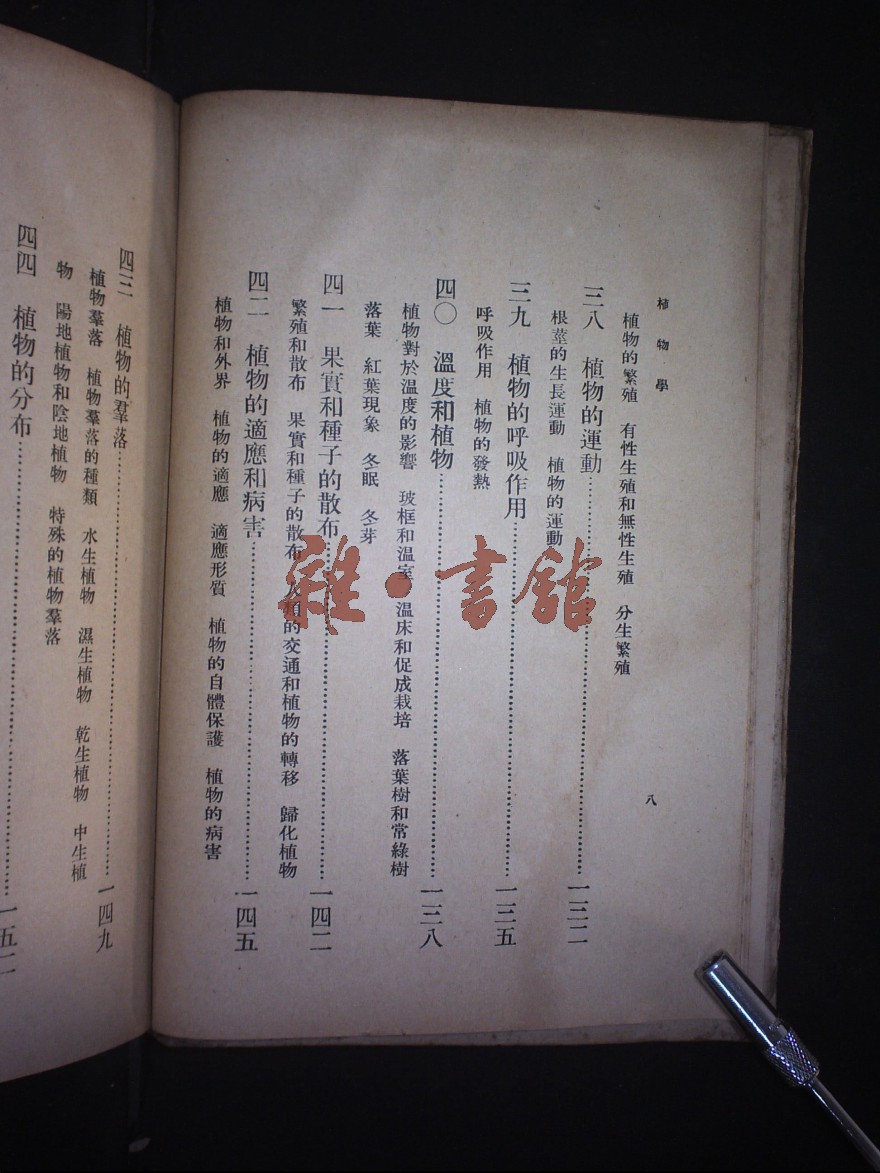 植物學
八
植物的繁殖　有性生殖和無性生殖　分生繁殖
三八　植物的運動……一三二
根莖的生長運動　植物的運動
三九　植物的呼吸作用……一三五
呼吸作用　植物的發熱
四〇　溫度和植物……一三八
植物對於溫度的影響　玻框和溫室　溫床和促成栽培　落葉樹和常綠樹
落葉　紅葉現象　冬眠　冬芽
四一　果實和種子的散布……一四二
繁殖和散布　果實和種子的散布　人類的交通和植物的轉移　歸化植物
四二　植物的適應和病害……一四五
植物和外界　植物的適應　適應形質　植物的自體保護　植物的病害
四三　植物的羣落……一四九
植物羣落　植物羣落的種類　水生植物　濕生植物　乾生植物　中生植
物　陽地植物和陰地植物　特殊的植物羣落
四四　植物的分布……一五二
雜·書館